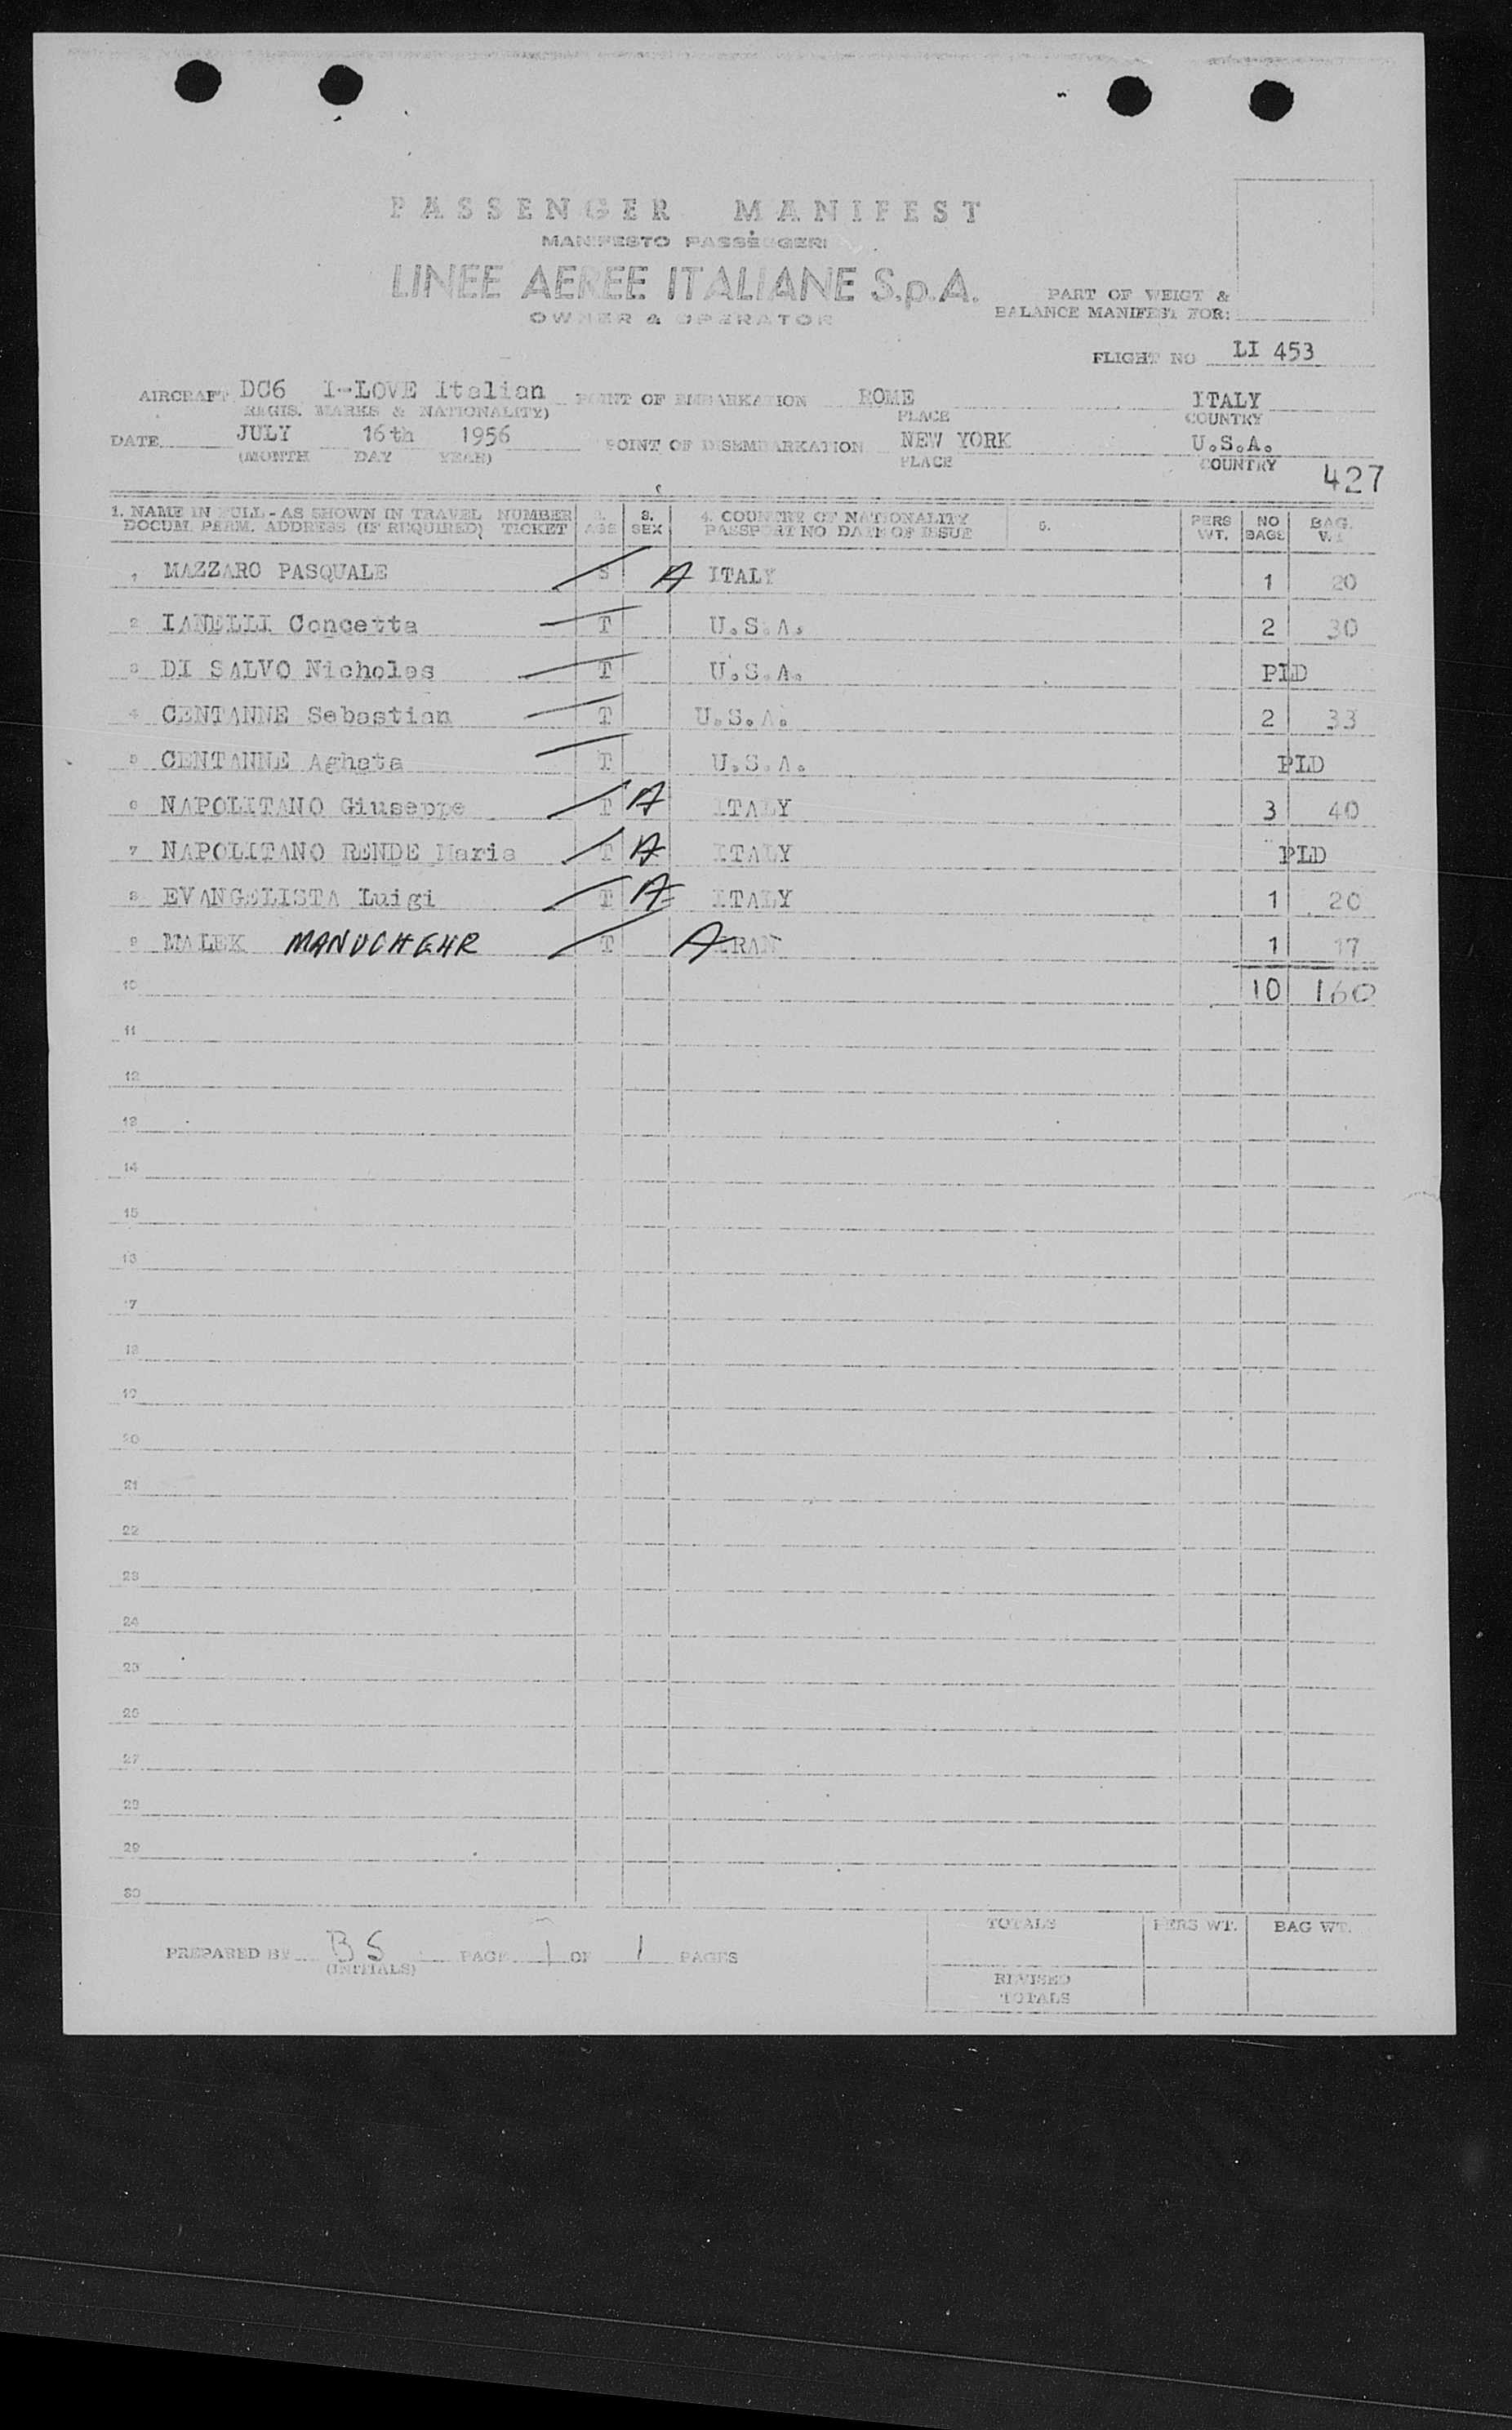 PASSENGER MANIFEST
MANIFESTO PASSEGGERI
LINEE AEREE ITALIANE S.p.A.
OWNER & OPERATOR
PART OF WEIGT &
BALANCE MANIFEST FOR:
FLIGHT NO LI 453
AIRCRAFT DC6 I-LOVE Italian POINT OF EMBARKATION ROME ITALY
REGIS. MARKS & NATIONALITY) PLACE COUNTRY
DATE JULY 16th 1956 POINT OF DISEMBARKATION NEW YORK U.S.A.
(MONTH DAY YEAR) PLACE COUNTRY
427
1. NAME IN FULL - AS SHOWN IN TRAVEL NUMBER 2. 3. 4. COUNTRY OF NATIONALITY 5. PERS NO BAG.
DOCUM. PERM. ADDRESS (IF REQUIRED) TICKET AGE SEX PASSPORT NO DATE OF ISSUE WT. BAGS WT
1 MAZZARO PASQUALE S A ITALY 1 20
2 IANELLI Concetta T U.S.A. 2 30
3 DI SALVO Nicholas T U.S.A. PLD
4 CENTANNE Sebastian T U.S.A. 2 33
5 CENTANNE Aghata T U.S.A. PLD
6 NAPOLITANO Giuseppe T A ITALY 3 40
7 NAPOLITANO RENDE Maria T A ITALY PLD
8 EVANGELISTA Luigi T A ITALY 1 20
9 MALEK MANUCHEHR T A IRAN 1 17
10 10 160
11
12
13
14
15
16
17
18
19
20
21
22
23
24
25
26
27
28
29
30
TOTALS PERS WT. BAG WT.
PREPARED BY BS PAGE 1 OF 1 PAGES
(INITIALS)
REVISED
TOTALS